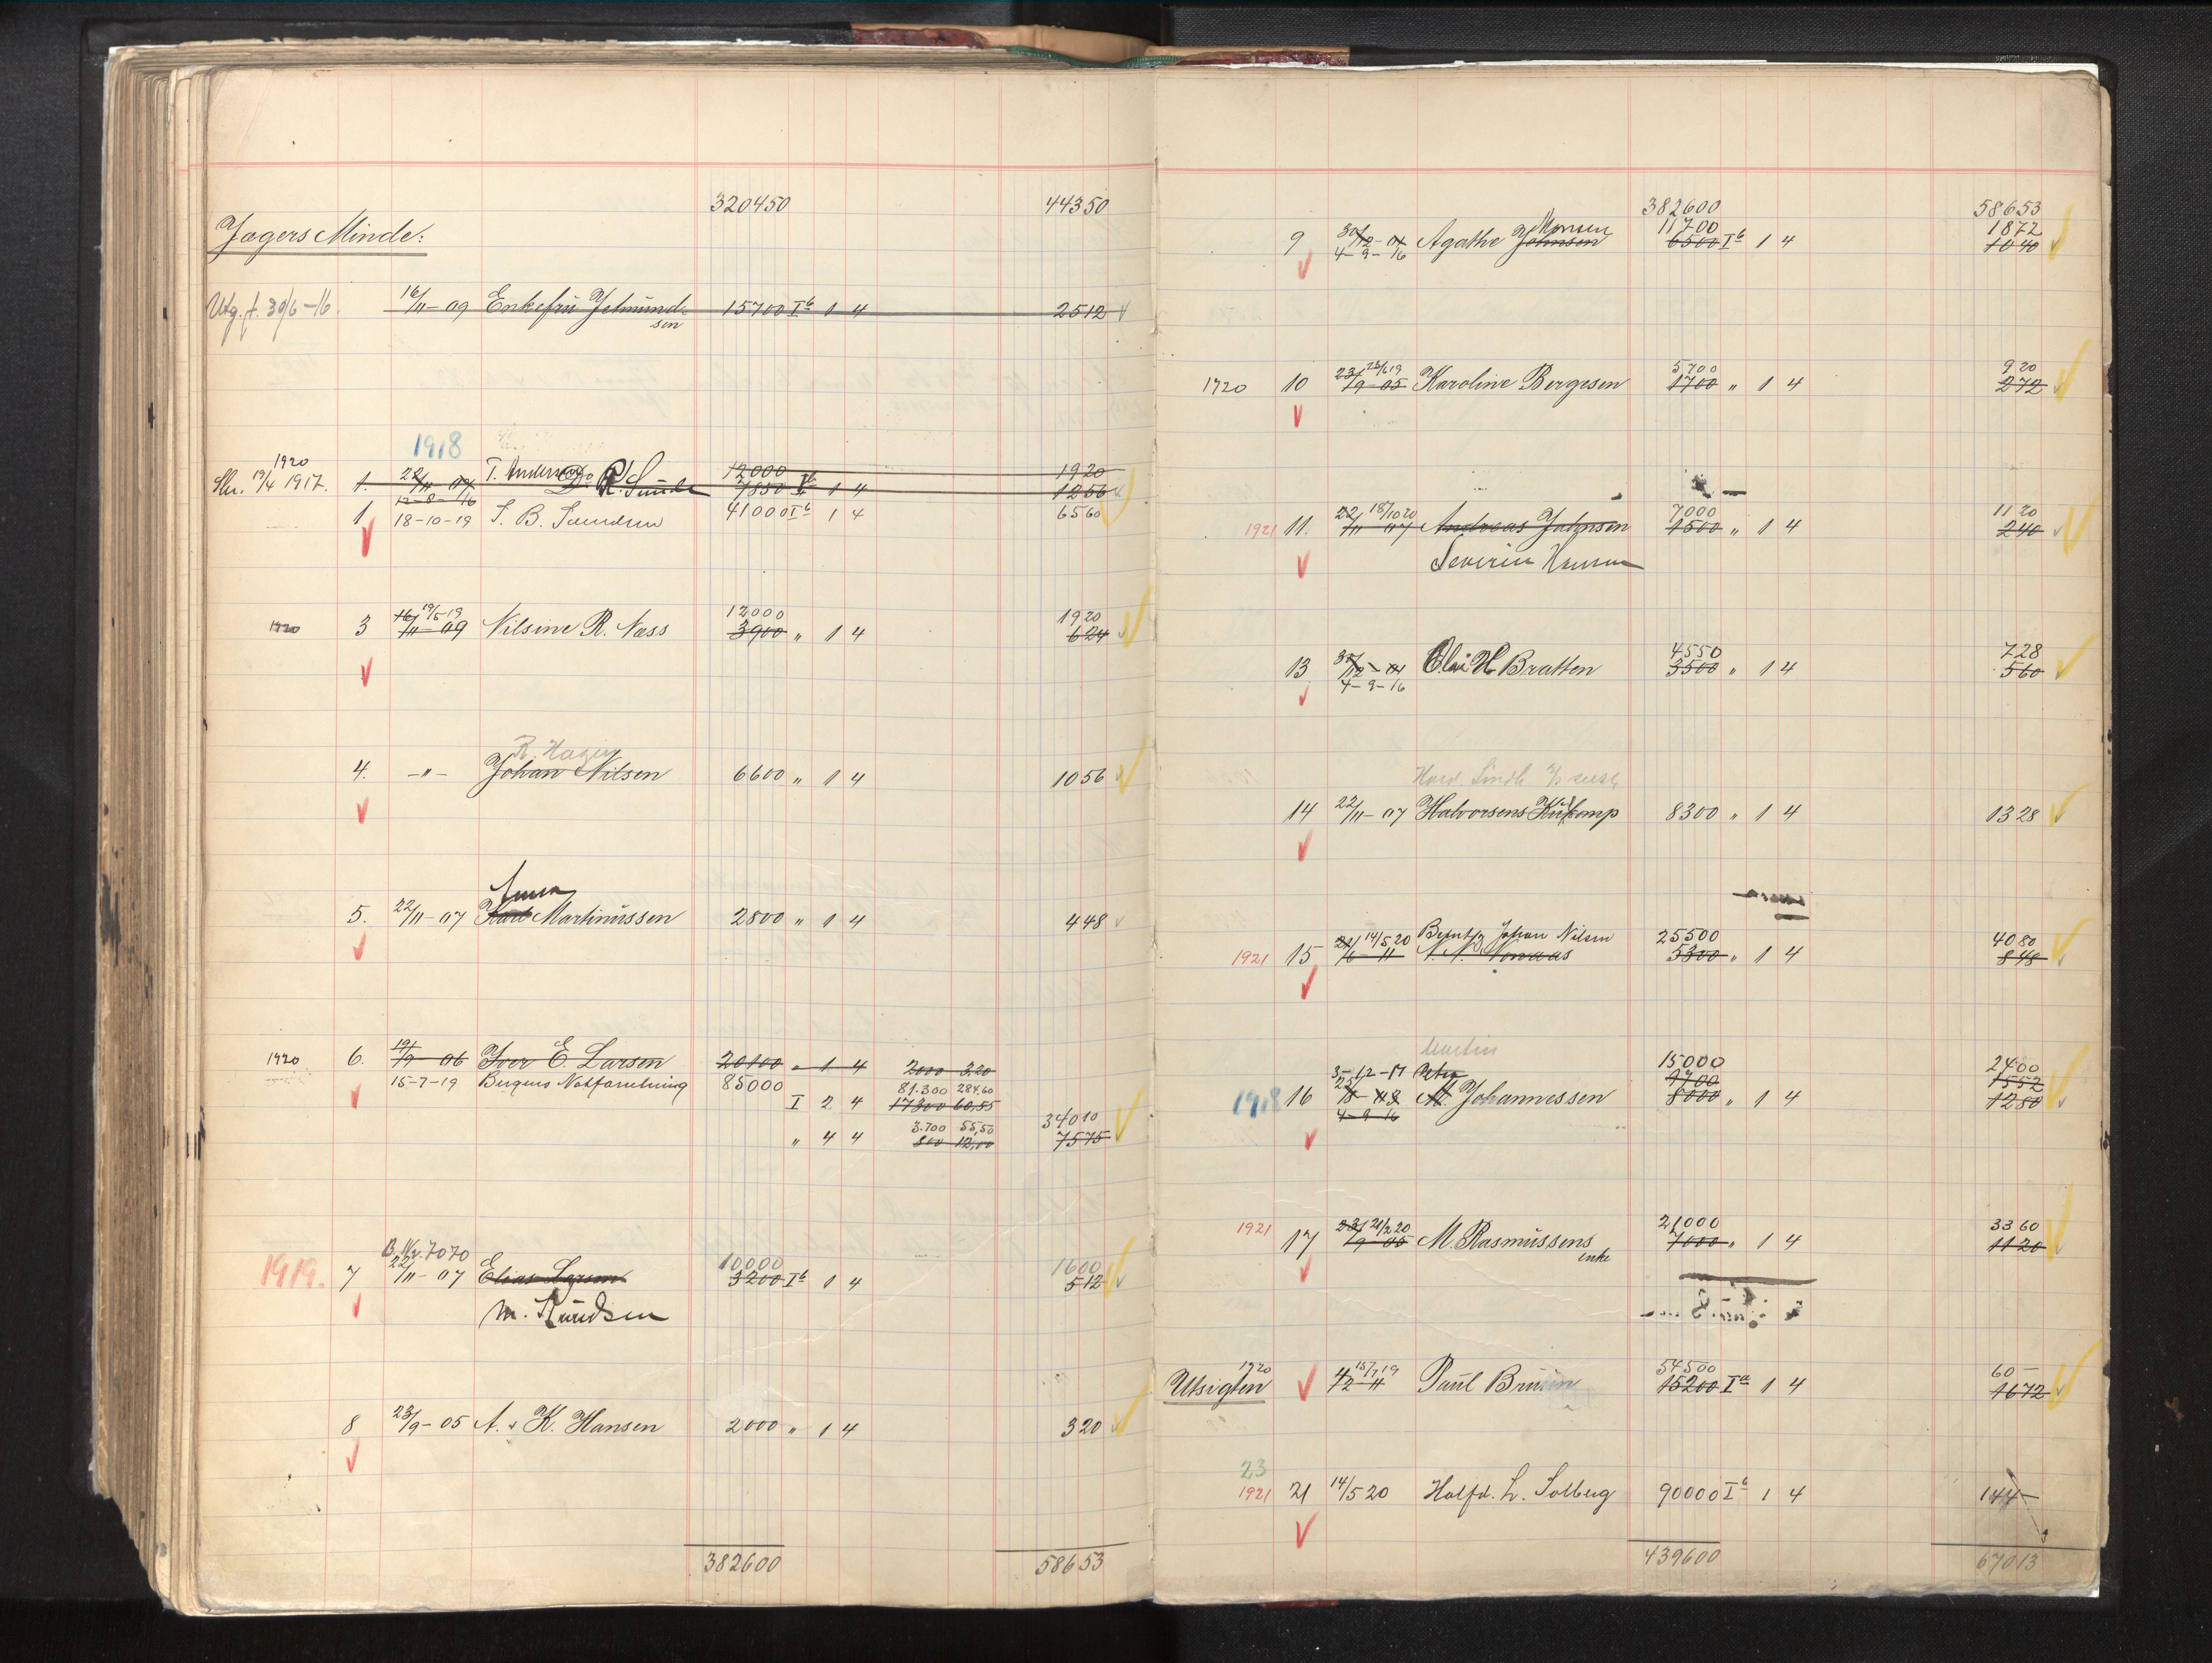 320450 44350
Jagers Minde:
Utg. f. 30/6-16. 16/11-09 Enkefrü Jetmünd- 15700 I b 1 4 2512
sen
1918
1920 T. Andersen 12000 1920
Skr. 19/4 1917. 1. 22/11-07 R. Sunde 7850 I b 1 4 1256
12-8-16
1 18-10-19 S. B. 41000 I b 1 4 6560
19/5-19 12000 1920
1920 3 16/11-09 Nilsine R. Næss 3900 " 1 4 624
R. Hagen
4. -"- Johan Nilsen 6600 " 1 4 1056
5. 22/11-07 Karl Martinüssen 2800 " 1 4 448
1920 6. 19/9-06 Iver E. Larsen 20100 " 1 4 2000 3,20
15-7-19 Bergens Notforretning 85000 81.300 284.60
I 2 4 17300 60,55
3.700 55,50 34010
" 4 4 800 12,00 7575
B. Nr. 7070 10000 1600
1919. 7 22/11-07 Elias Larsen 3200 I b 1 4 512
M. Knüdsen
8 23/9-05 A. & K. Hansen 2000 " 1 4 320
382600 58653
382600 58653
Monsen 11700 1872
9 30/12-04 Agathe Johnsen 6500 I b 1 4 1040
4-9-16
5700 920
1920 10 23/9-05 Karoline Bergesen 1700 " 1 4 272
18/10 20 7000 1120
1921 11. 22/11-07 Andreas Johnsen 1500 " 1 4 240
Severin Hansen
4550 728
13 30/12-04 H Bratten 3500 " 1 4 560
4-9-16
14 22/11-07 Halvorsens 8300 " 1 4 1328
14/5 20 Berntz Johan Nilsen 25500 4080
1921 15 21/6-11 5300 " 1 4 848
Martin 15000 2400
3-12-17 Petra 9700 1552
1918 16 M. Johannessen 8000 " 1 4 1280
4-9-16
21/2 20 21000 3360
1921 17 23/9-05 M. Rasmüssens 7000 " 1 4 1120
enke
1920 15/7 19 54500 60-
Utsigten 4/2-11 Paül Brüün 15200 I a 1 4 1672
23
1921 21 14/5 20 Halfd. L. Solberg 90000 I b 1 4 144-
439600 67013